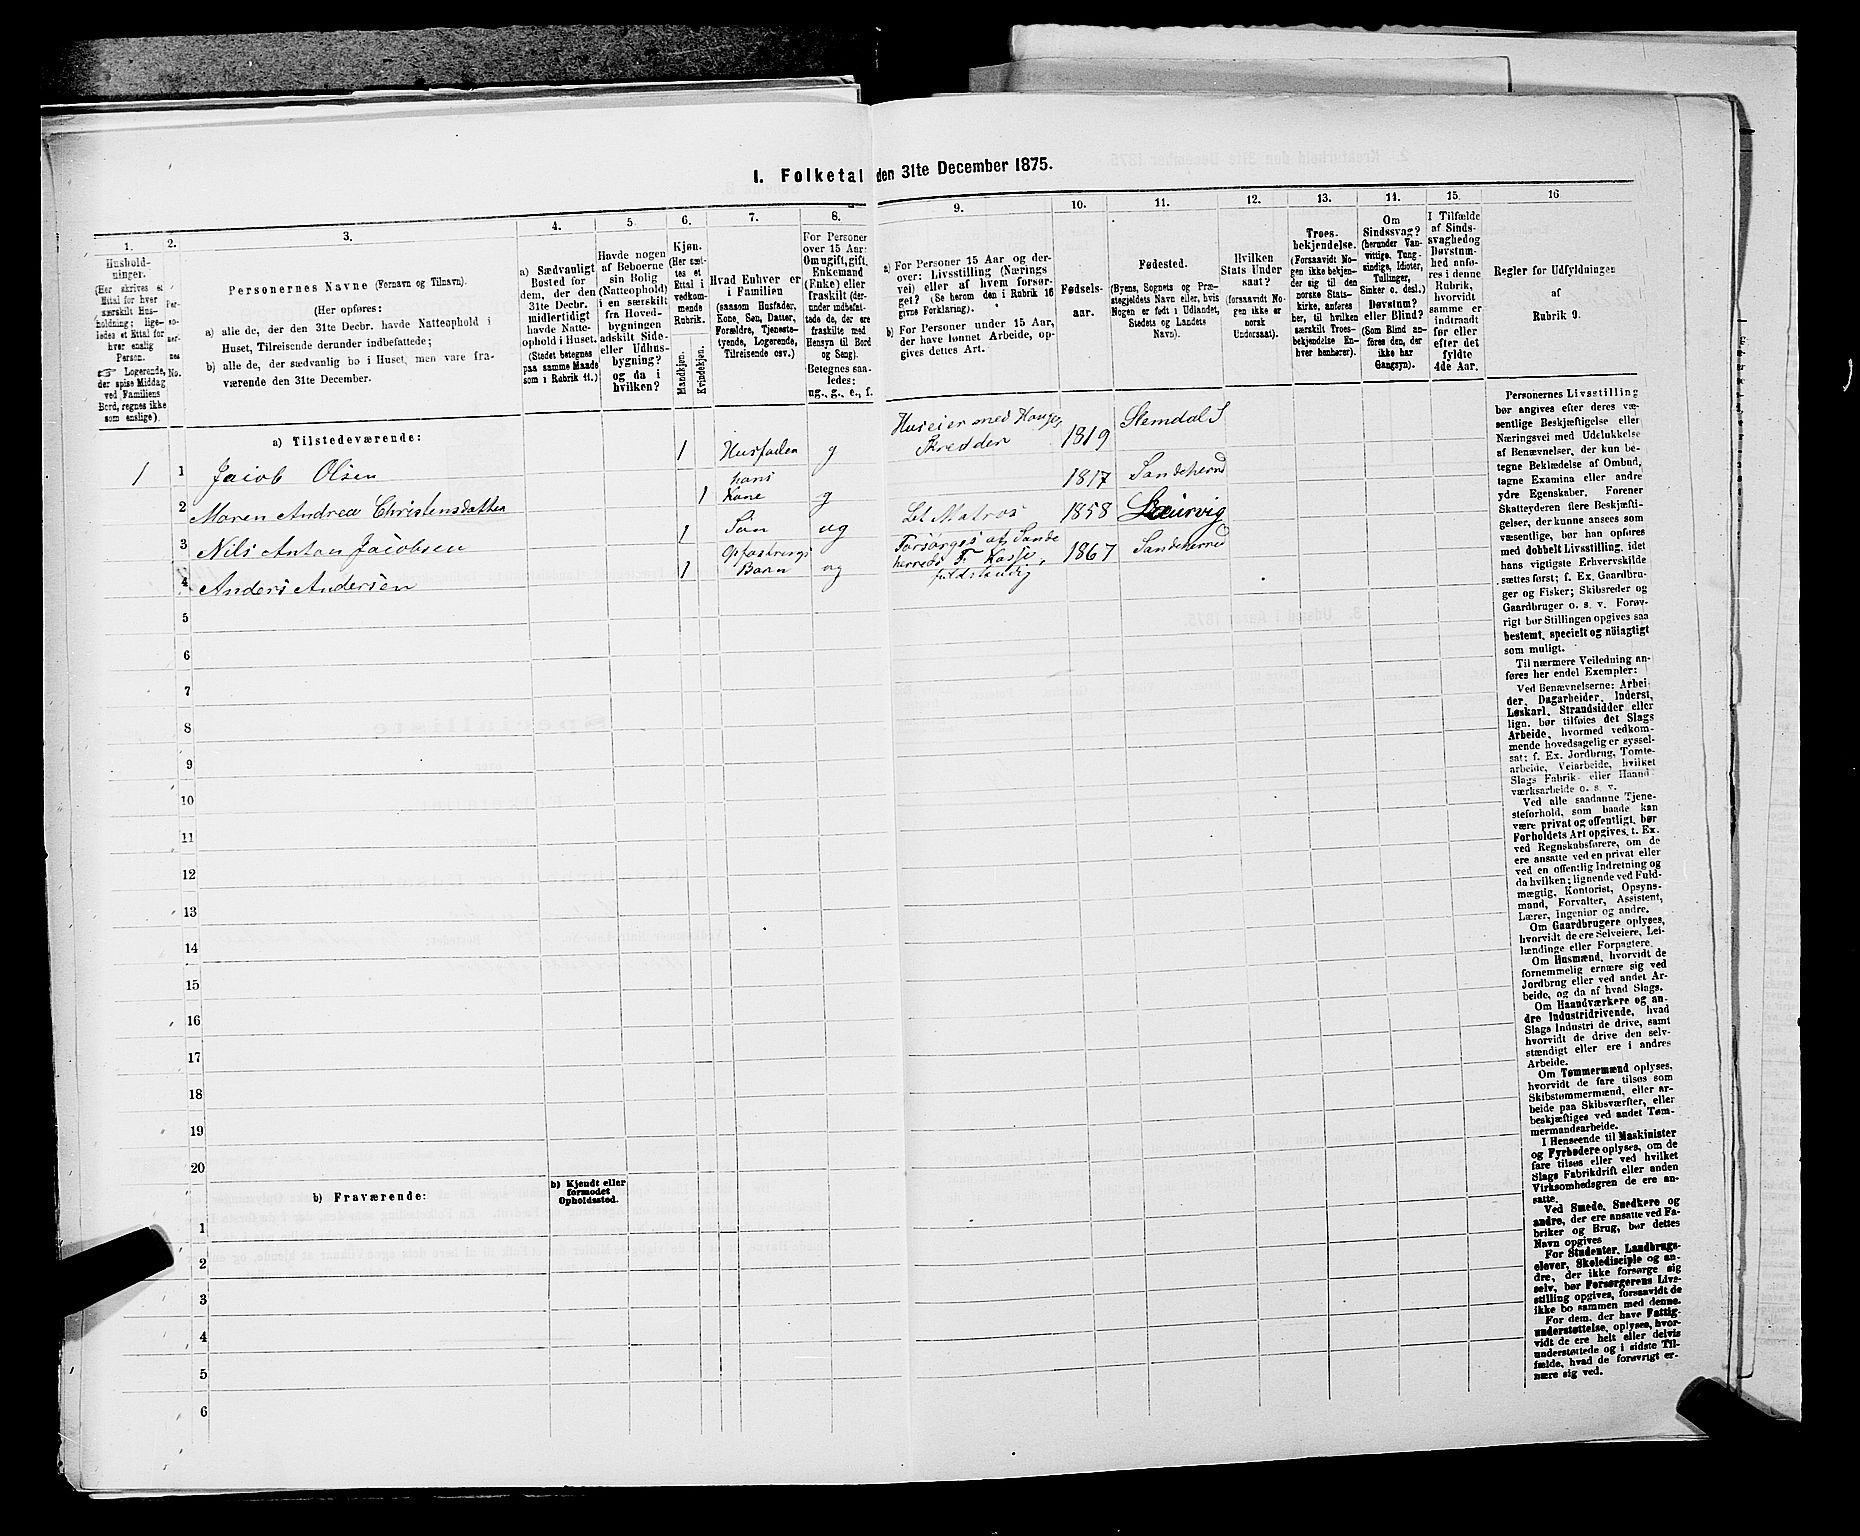 I. Folketal den 31te December 1875.
1. 2. 3. 4. 5. 6. 7. 8. 9. 10. 11. 12. 13. 14. 15. 16
Hushold-
ninger.
(Her skrives et
Ettal for hver
særskilt Hus-
holdning; lige-
ledes et Ettal for
hver enslig
Person.
☞ Logerende,
der spise Middag
ved Familiens
Bord, regnes ikke
som enslige).
Per-
so-
ner-
nes
No.
Personernes Navne (Fornavn og Tilnavn).
(Her opføres:
a) alle de, der den 31te Decbr. havde Natteophold i
Huset, Tilreisende derunder indbefattede;
b) alle de, der sædvanlig bo i Huset, men vare fra-
værende den 31te December.
a) Sædvanligt
Bosted for
dem, der den
31te Decbr.
midlertidigt
havde Natte-
ophold i Huset.
(Stedet betegnes
paa samme Maade
som i Rubrik 11.)
Havde nogen
af Beboerne
sin Bolig
(Natteophold)
i en særskilt
fra Hoved-
bygningen
adskilt Side-
eller Udhus-
bygning?
og da i
hvilken?
Kjøn.
(Her sæt-
tes et
Ettal i
vedkom-
mende
Rubrik.
Mandkjøn.
Kvindekjøn.
Hvad Enhver er
i Familien
(saasom Husfader,
Kone, Søn, Datter,
Forældre, Tjeneste-
tyende, Logerende,
Tilreisende osv.)
For Personer
over 15 Aar:
Om ugift, gift,
Enkemand
(Enke) eller
fraskilt (der-
under indbefat-
tede de, der ere
fraskilte med
Hensyn til Bord
og Seng).
Betegnes saa-
ledes:
ug., g., e., f.
a) For Personer 15 Aar og der-
over: Livsstilling (Nærings
vei) eller af hvem forsør-
get? (Se herom den i Rubrik 16
givne Forklaring).
b) For Personer under 15 Aar,
der have lønnet Arbeide, op-
gives dettes Art.
Fødsels-
aar.
Fødested.
(Byens, Sognets og Præ-
stegjeldets Navn eller, hvis
Nogen er født i Udlandet,
Stedets og Landets
Navn).
Hvilken
Stats Under
saat?
(forsaavidt No-
gen ikke er
norsk
Undersaat).
Troes-
bekjendelse.
(Forsaavidt No-
gen ikke bekjen-
der sig til den
norske Stats-
kirke, anføres
her, til hvilken
særskilt Troes-
bekjendelse En-
hver henhører).
Om
Sindssvag?
(herunder Van-
vittige, Tung-
sindige, Idioter,
Tullinger,
Sinker o. desl.)
Døvstum?
eller Blind?
(Som Blind an-
føres den, der
ikke har
Gangsyn).
I Tilfælde
af Sinds-
svaghed og
Døvstum-
hed anfø-
res i denne
Rubrik,
hvorvidt
samme er
indtraadt
før eller
efter det
fyldte
4de Aar.
Regler for Udfyldningen
af
Rubrik 9.
a) Tilstedeværende:
1 1 Jacob Olsen 1 Husfader g Huseier med Hauge, Skredder 1819 Slemdal S
2 Maren Andrea Christensdatter 1 hans Kone g 1817 Sandeherred
3 Nils Anton Jacobsen 1 Søn ug Let Matros 1858 Laurvig
4 Anders Andersen 1 Opfostrings Barn ug Forsørges af Sande
herreds F. Kasse,
fuldstændig 1867 Sandeherred
5
6
7
8
9
10
11
12
13
14
15
16
17
18
19
20
b) Fraværende:
b) Kjendt eller
formodet
Opholdssted.
1
2
3
4
5
6
Personernes Livsstilling
bør angives efter deres væ-
sentlige Beskjæftigelse eller
Næringsvei med Udelukkelse
af Benævnelser, der kun be-
tegne Beklædelse af Ombud,
tagne Examina eller andre
ydre Egenskaber. Forener
Skatteyderen flere Beskjæfti-
gelser, der kunne ansees som
væsentlige, bør han opføres
med dobbelt Livsstilling, idet
hans vigtigste Erhvervskilde
sættes først; f. Ex. Gaardbru-
ger og Fisker; Skibsreder og
Gaardbruger o. s. v. Forøv-
rigt bør Stillingen opgives saa
bestemt, specielt og nöiagtigt
som muligt.
Til nærmere Veiledning an-
føres her endel Exempler:
Ved Benævnelserne: Arbei-
der, Dagarbeider, Inderst,
Løskarl, Strandsidder eller
lign. bør tilføies det Slags
Arbeide, hvormed vedkom-
mende hovedsagelig er syssel-
sat; f. Ex. Jordbrug, Tomte-
arbeide, Veiarbeide, hvilket
Slags Fabrik- eller Haand-
værksarbeide o. s. v.
Ved alle saadanne Tjene-
steforhold, som baade kan
være privat og offentligt, bør
Forholdets Art opgives, t. Ex.
ved Regnskabsførere, om de
ere ansatte ved en privat eller
ved en offentlig Indretning og
da hvilken; lignende ved Fuld-
mægtig, Kontorist, Opsyns-
mand, Forvalter, Assistent,
Lærer, Ingeniør og andre.
Om Gaardbrugere oplyses,
hvorvidt de ere Selveiere, Lei-
lændinge eller Forpagtere.
Om Husmænd, hvorvidt de
fornemmelig ernære sig ved
Jordbrug eller ved andet Ar-
beide, og da af hvad Slags.
Om Haandværkere og an-
dre Industridrivende, hvad
Slags Industri de drive, samt
hvorvidt de drive den selv-
stændigt eller ere i andres
Arbeide.
Om Tømmermænd oplyses,
hvorvidt de fare tilsøs som
Skibstømmermænd, eller ar-
beide paa Skibsværfter, eller
beskjæftiges ved andet Tøm-
mermandsarbeide.
I Henseende til Maskinister
og Fyrbødere oplyses, om de
fare tilsøs eller ved hvilket
Slags Fabrikdrift eller anden
Virksomhedsgren de ere an-
satte.
Ved Smede, Snedkere og
andre, der ere ansatte ved Fa-
briker og Brug, bør dettes
Navn opgives
For Studenter, Landbrugs-
elever, Skoledisciple og an-
dre, der ikke forsørge sig
selv, bør Forsørgerens Livs-
stilling opgives, forsaavidt de
ikke bo sammen med denne.
For dem, der have Fattig-
understøttelse, oplyses, hvor-
vidt de ere helt eller delvis
understøttede og i sidste Til-
fælde, hvad de forøvrigt er-
nære sig ved.